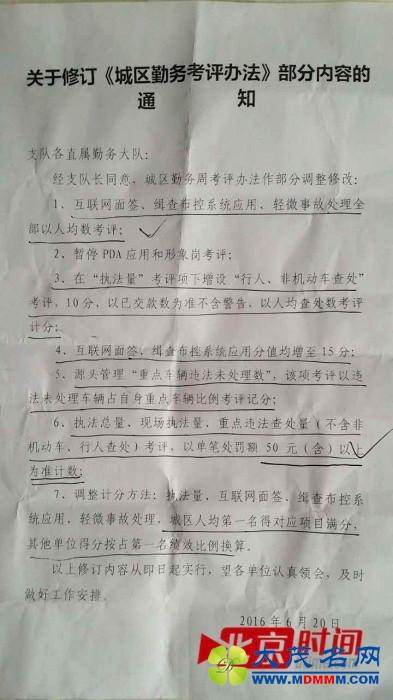 关于修订《城区勤务考评办法》部分内容的
通 知
支队各直属勤务大队：
经支队长同意，城区勤务周考评办法作部分调整修改：
1、互联网面签、缉查布控系统应用、轻微事故处理全
部以人均数考评；
2、暂停PDA应用和形象岗考评；
3、在“执法量”考评项下增设“行人、非机动车查处”
考评，10分，以已交款数为准不含警告，以人均查处数考评
计分；
4、互联网面签、缉查布控系统应用分值均增至15分；
5、源头管理“重点车辆违法未处理数”，该项考评以违
法未处理车辆占自身重点车辆比例考评记分；
6、执法总量、现场执法量，重点违法查处量（不含非
机动车、行人查处）考评，以单笔处罚额50元（含）以上
为准计数；
7、调整计分方法：执法量，互联网面签、缉查布控系
统应用，轻微事故处理，城区人均第一名得对应项目满分，
其他单位得分按占第一名绩效比例换算。
以上修订内容从即日起实行，望各单位认真领会，及时
做好工作安排。
2016年6月20日
北京时间
大茂名网
www.MDMMM.com